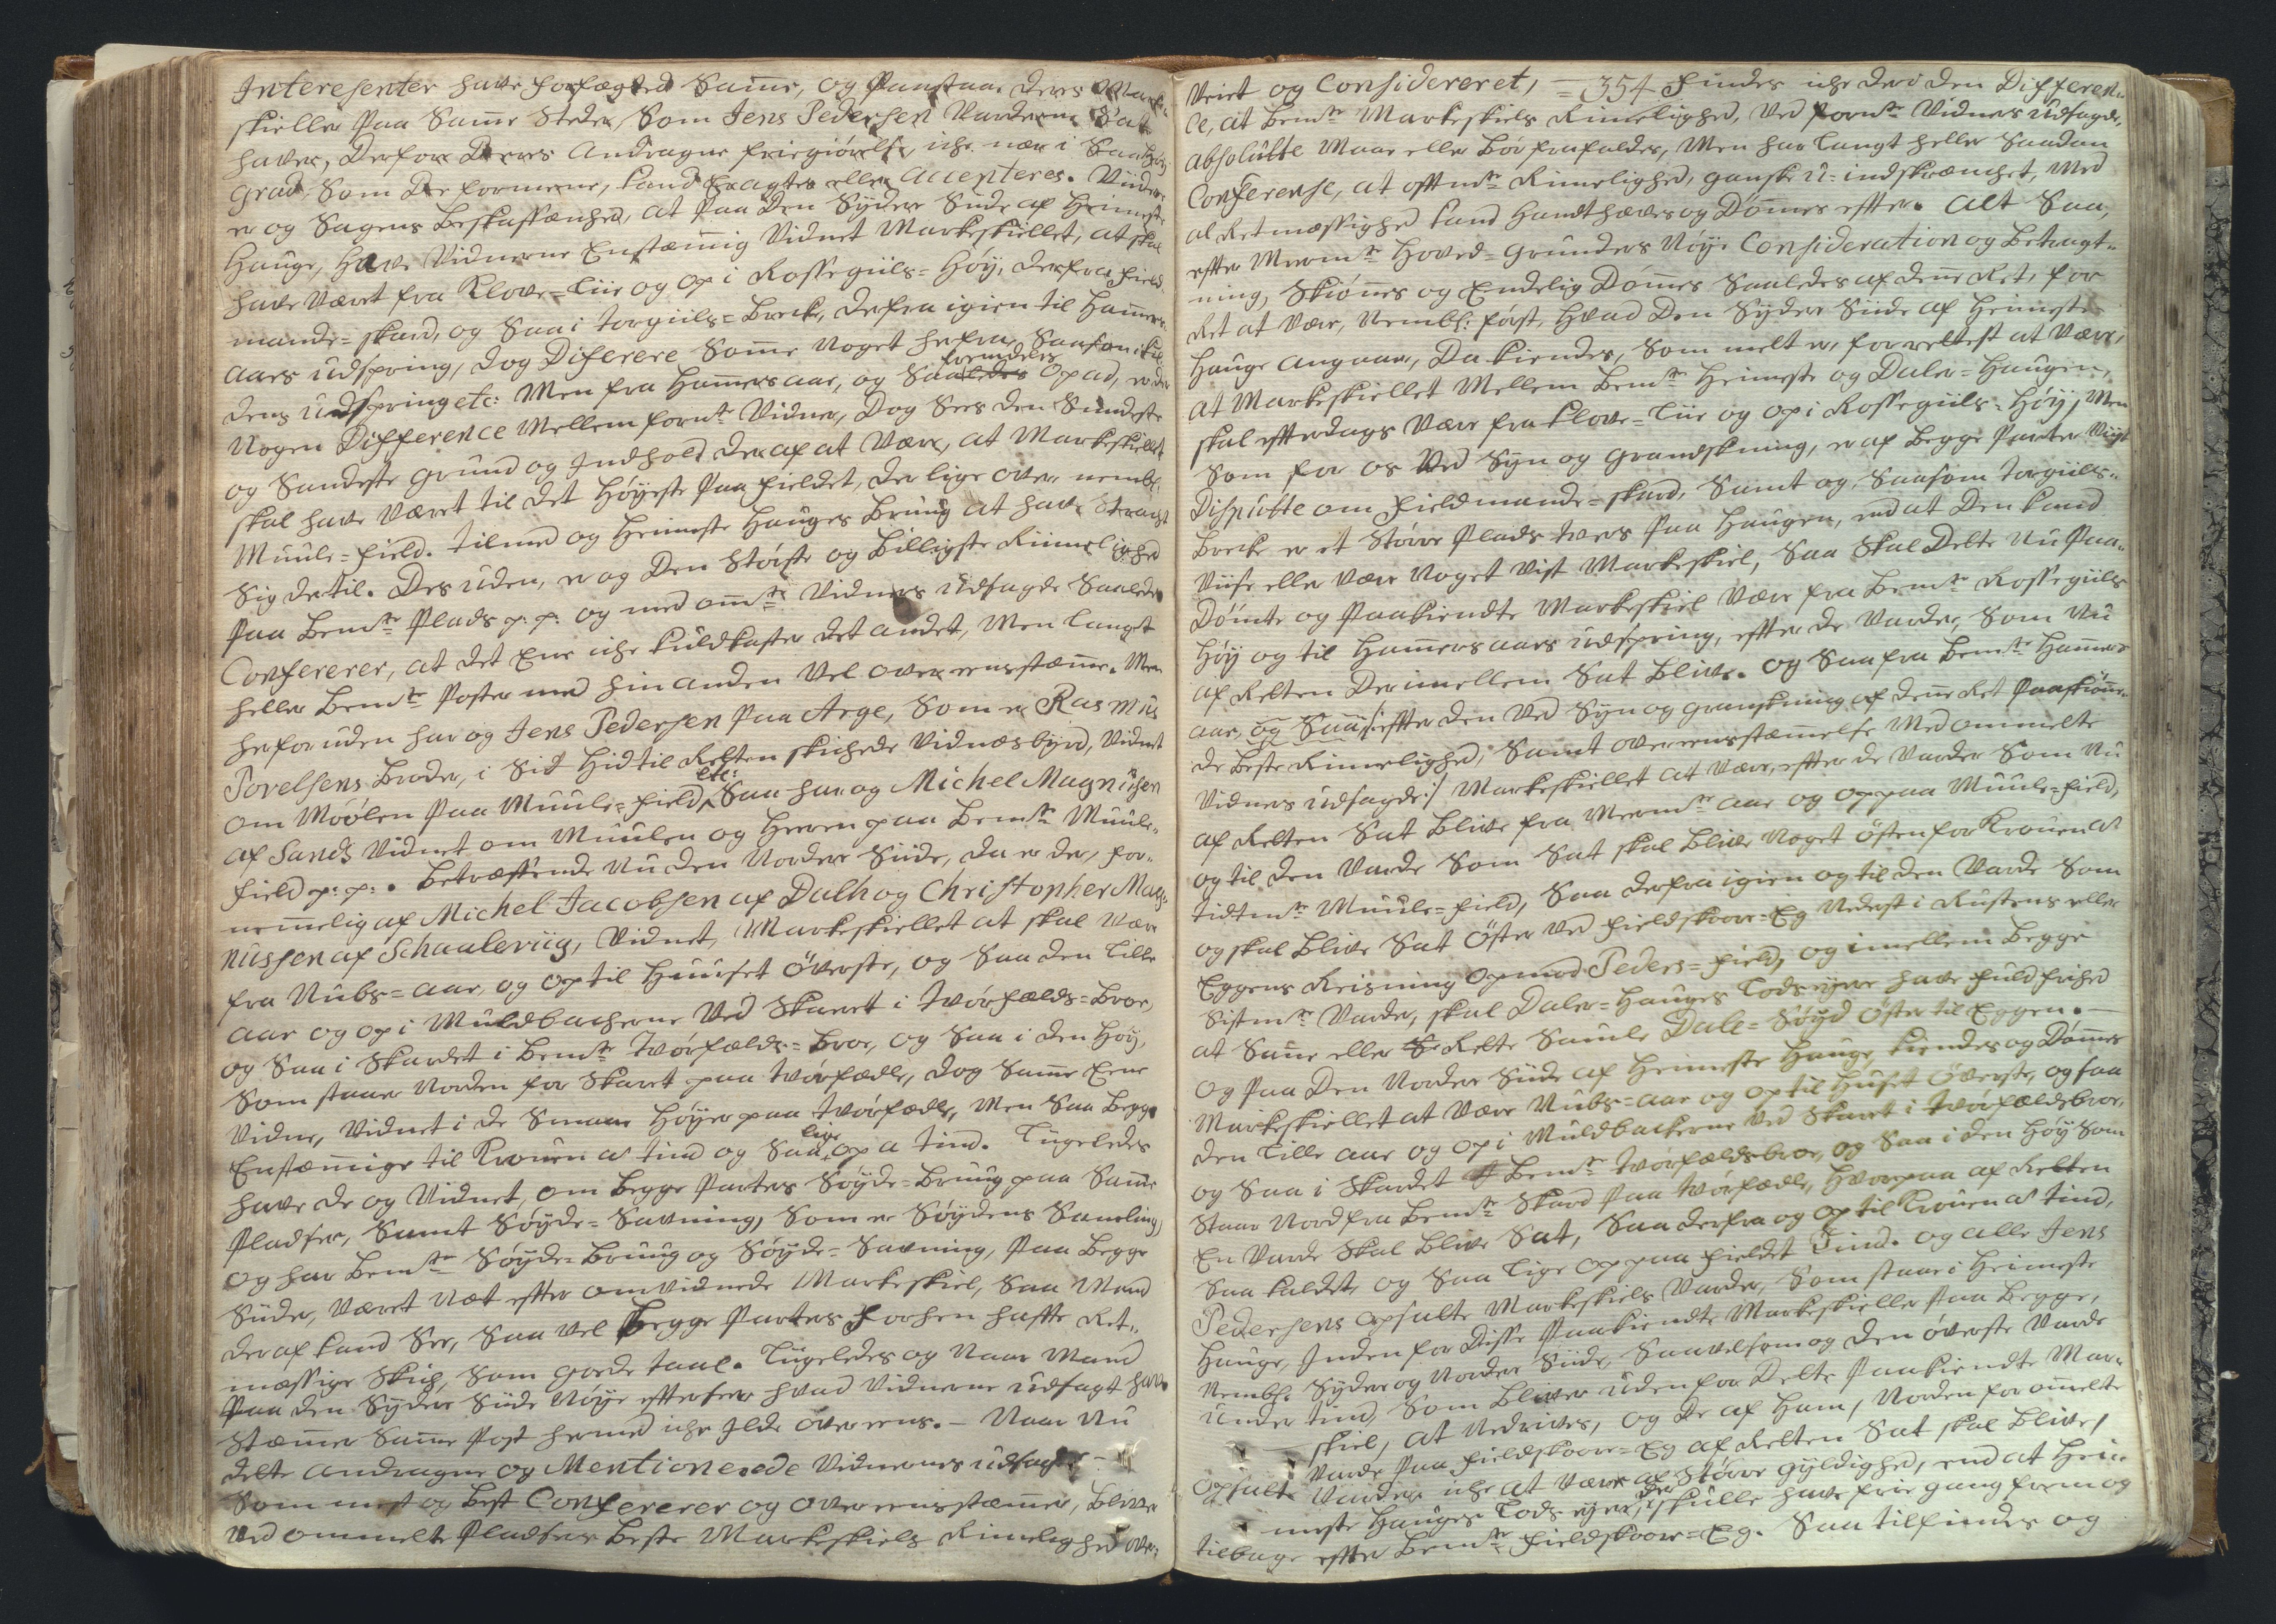 Interesenter have forfægted Samme, og Paastaar deres Marke-
skieller Paa Samme Steder, Som Jens Pedersen Varderne Sat
haver, Derfor deres Andragne friegiørelse, iche nær i Saa høy
grad, Som De formene, kand fragtes eller Accepteres. Viidere
er og Sagens Beskaffænhed, at Paa Den Syder Siide af Heimeste
Hauge, Have Vidnerne Enstæmig Vidnet Markeskiellet, at skal
have Været fra Klove-Liie og op i Rossegiils-Høy, derfra Field-
mands-skard, og Saa i Torgiils-Breck, defra igien til Hammers-
aars udspring, dog Diferere Somme Noget herfra, Saasom til
dens udspring etc: Men fra Hammers aar, og Saa fremdeles opad, er der
Nogen Difference Mellem fornte Vidner, Dog Sees den Sundeste
og Sandeste grund og Indhold der af at Være, at Markeskiellet
skal have Været til det Høyeste Paa Fieldet, der lige over, nembl:
Muule-Field. Tilmed og Heimeste Hauges Bruug at have Stragt
Sig dertil. Desuden, er og Den Største og Billigste Riimelighed
Paa Bemte Plads p: p: og med omte Vidners udsagde Saaledes
Confererer, at det Eene iche kuldkaster det andet, Men langt
heller Bemte Poster med hin anden Vel overeensstæme. Men
her foruden har og Jens Pedersen Paa Arge, Som er Rasmus
Povelsens Broder, i Sit Hid til Retten skichede Vidnesbyrd, Vidnet
om Moölen Paa Muule-Field, etc: Saa har og Michel Magnusen
af Sands Vidnet om Muulen og Heren paa Bemte Muule-
Field p: p: . Betræffende Nu den Norder Siide, da er der, for-
nemmelig af Michel Jacobsen af Dalh og Christopher Mag-
nussen af Schaaleviig, Vidnet, Markeskiellet at skal være
fra Nubs-aar, og op til Huuset Överste, og Saa den Lille
aar og op i Muldbacherne Ved Skaret i Tvörfælds-Broe,
og Saa i Skardet i Bemte Tvörfælds-Broe, og Saa i den Høy,
Som staar Norden for Skaret paa Tvörfædle, dog Samme Eene
Vidne, Vidnet i de Smaa Høyer paa Tvörfædle, Men Saa Begge
Enstæmmige til Krouen a Tind og Saa lige op a Tind. Liigeledes
have de og Vidnet, om Begge Parters Søyde-Bruug paa Samme
Pladser, Samt Søyde-Savning, Som er Søydens Samling,
og har Bemte Søyde-Bruug og Søyde-Savning, Paa Begge
Siider, Været Næt efter omvidnede Markeskiel, Saa Mand
der af kand See, Saa vel Begge Parters forhen hafte Ret-
mæssige Skiel, Som gode Taal. Liigeledes og Naar Mand
Paa den Syder Siide Nøye efterseer hvad Vidnerne udsagt have
Stæmmer Samme Post hermed iche Ilde overeens. - Naar Nu
dette Andragne og Mentionerede Vidnernes udsagde -
Som mest og best Confererer og overeensstæmmer, bliver
Ved ommelte Pladsers Beste Markeskiels Rimelighed over-
Veiet og Considereret, = 354 Findes iche ved den Differen-
ce, at Bemte Markeskiels Rimelighed, Ved fornte Vidners udsagde,
absolutte Maae eller Bör frafaldes, Men har langt heller Saadan
Conferense, at oftmte Rimelighed, gandske U-indskrænchet, Med
al Retmæssighed kand Handthæves og Dømmes efter. Alt Saa,
efter Meermte Hoved-Grunders Nøye Consideration og Betragt-
ning, Skiønnes og Endelig Dømmes Saaledes af denne Ret, for
Ret at Være, Nembl: först, Hvad Den Syder Siide af Heimeste
Hauge angaar, Da kiendes, Som melt er, for rettest at Være,
at Markeskiellet Mellem Bemte Heimeste og Daler-Haugen,
skal efterdags Være fra Klove-Liie og op i Rossegiils-Høy, Men
Som for os Ved Syn og Grandskning, er af Begge Parter Viist
Dispütte om Fieldmands-skard, Samt og, Saasom Torgiils-
Breck er et Större Plads tvers Paa Haugen, end at Den kand
Viise eller Være Noget Vist Markeskiel, Saa Skal Dette Nu Paa-
Dömte og Paakiendte Markeskiel Være fra Bemte Rossegiils
Høy og til Hammersaars udspring, efter de Varder, Som Nu
af Retten Derimellem Sat Blive. og Saa fra Bemte Hammers
aar, og Saa /: efter den Ved Syn og granskning af denne Ret Paaskiönne-
de Beste Rimelighed, Samt overeensstæmmelse Med ommelte
Vidners udsagde :/ Markeskiellet at Være, efter de Varder Som Nu
af Retten Sat Blive fra Meermte aar og op paa Muule-Field,
og til den Varde Som Sat skal Blive Noget Østen for Krouen a
tidtmte Muule-Field, Saa derfra igien og til den Varde Som
og skal Blive Sat Öster Ved Fieldskoore-Eg Nederst i Rustens eller
Eggens Reisning op mod Peders-Field, og imellem Begge
Sistmte Varder, skal Daler-Hauges Lodseyere have fuld frihed
at Samme eller Rette Samle Dale-Søyd Øster til Eggen. -
Og Paa Den Norder Siide af Heimeste Hauge, kiendes og Dømmes
Markeskiellet at Være Nubs-aar og op til Huset Överste, og saa
den Lille aar og op i Muldbackerne Ved Skaret i Tvörfældsbroe,
og Saa i Skardet i Bemte Tvörfældsbroe, og Saa i den Høy Som
Staar Nord fra Bemte Skard Paa Tvörfædle, Hvorpaa af Retten
En Varde Skal Blive Sat, Saa derfra og op til Krouen a Tind,
Saa kaldet, og Saa Lige op paa Fieldet Tind. og alle Jens
Pedersens opsatte Markeskiels Varder, Som staar i Heimeste
Hauge, Inden for Disse Paakiendte Markeskieller Paa Begge,
Nembl: Syder og Norder Siide, Saavelsom og den överste Varde
under Tind, Som Bliver uden for Dette Paakiendte Mar-
skiel, at Nedrives, og De af Ham, Norden for omelte
Varde Paa Fieldskoore-Eg af Retten Sat skal Blive,
opsatte Varder iche at Være af Större Gyldighed, end at Hei-
meste Hauges Lods eyere, der, skulle have frie gang frem og
tilbage efter Bemte Fieldskoore-Eg. Saa tilfindes og